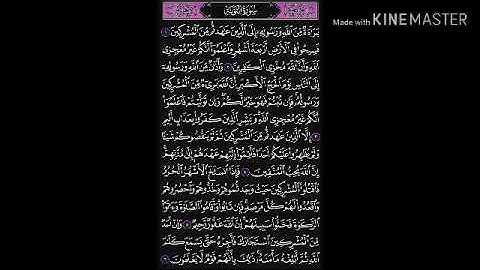 Made with KINEMASTER
سُورَةُ التَّوْبَةِ
بَرَآءَةٌ مِّنَ ٱللَّهِ وَرَسُولِهِۦٓ إِلَى ٱلَّذِينَ عَٰهَدتُّم مِّنَ ٱلْمُشْرِكِينَ ١
فَسِيحُوا۟ فِى ٱلْأَرْضِ أَرْبَعَةَ أَشْهُرٍ وَٱعْلَمُوٓا۟ أَنَّكُمْ غَيْرُ مُعْجِزِى
ٱللَّهِ وَأَنَّ ٱللَّهَ مُخْزِى ٱلْكَٰفِرِينَ ٢ وَأَذَٰنٌ مِّنَ ٱللَّهِ وَرَسُولِهِۦٓ
إِلَى ٱلنَّاسِ يَوْمَ ٱلْحَجِّ ٱلْأَكْبَرِ أَنَّ ٱللَّهَ بَرِىٓءٌ مِّنَ ٱلْمُشْرِكِينَ
وَرَسُولُهُۥ فَإِن تُبْتُمْ فَهُوَ خَيْرٌ لَّكُمْ وَإِن تَوَلَّيْتُمْ فَٱعْلَمُوٓا۟
أَنَّكُمْ غَيْرُ مُعْجِزِى ٱللَّهِ وَبَشِّرِ ٱلَّذِينَ كَفَرُوا۟ بِعَذَابٍ أَلِيمٍ
٣ إِلَّا ٱلَّذِينَ عَٰهَدتُّم مِّنَ ٱلْمُشْرِكِينَ ثُمَّ لَمْ يَنقُصُوكُمْ شَيْـًٔا
وَلَمْ يُظَٰهِرُوا۟ عَلَيْكُمْ أَحَدًا فَأَتِمُّوٓا۟ إِلَيْهِمْ عَهْدَهُمْ إِلَىٰ مُدَّتِهِمْ
إِنَّ ٱللَّهَ يُحِبُّ ٱلْمُتَّقِينَ ٤ فَإِذَا ٱنسَلَخَ ٱلْأَشْهُرُ ٱلْحُرُمُ
فَٱقْتُلُوا۟ ٱلْمُشْرِكِينَ حَيْثُ وَجَدتُّمُوهُمْ وَخُذُوهُمْ وَٱحْصُرُوهُمْ
وَٱقْعُدُوا۟ لَهُمْ كُلَّ مَرْصَدٍ فَإِن تَابُوا۟ وَأَقَامُوا۟ ٱلصَّلَوٰةَ وَءَاتَوُا۟
ٱلزَّكَوٰةَ فَخَلُّوا۟ سَبِيلَهُمْ إِنَّ ٱللَّهَ غَفُورٌ رَّحِيمٌ ٥ وَإِنْ أَحَدٌ
مِّنَ ٱلْمُشْرِكِينَ ٱسْتَجَارَكَ فَأَجِرْهُ حَتَّىٰ يَسْمَعَ كَلَٰمَ
ٱللَّهِ ثُمَّ أَبْلِغْهُ مَأْمَنَهُۥ ذَٰلِكَ بِأَنَّهُمْ قَوْمٌ لَّا يَعْلَمُونَ ٦